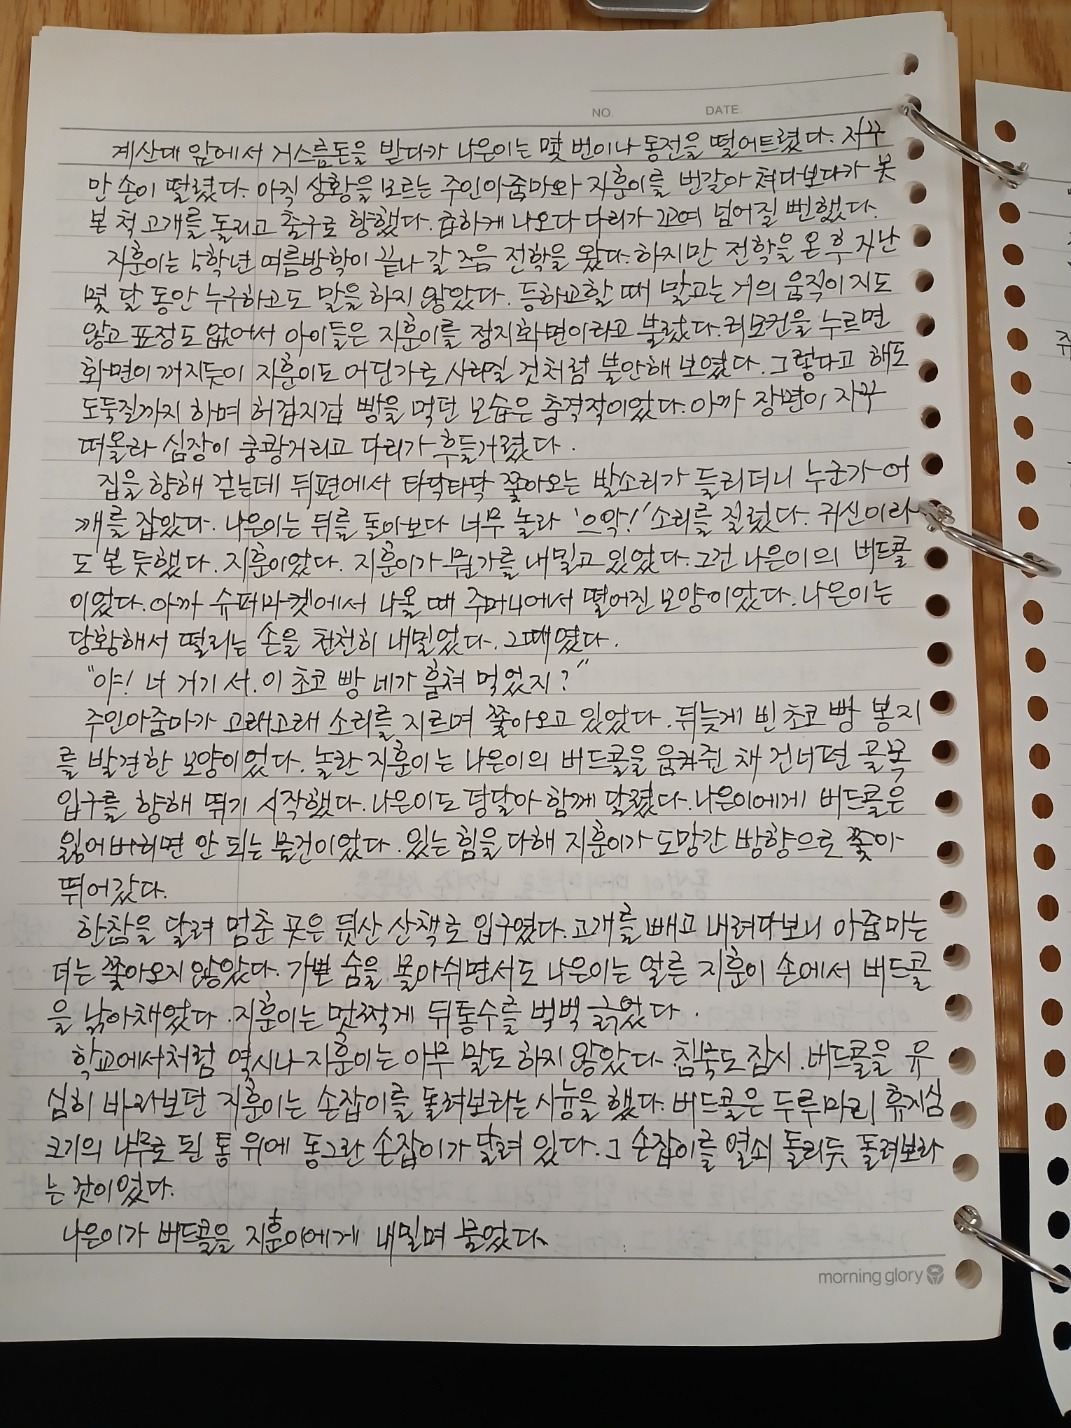 NO. DATE.
계산대 앞에서 거스름돈을 받다가 나은이는 몇 번이나 동전을 떨어트렸다. 자꾸
만 손이 떨렸다. 아직 상황을 모르는 주인아줌마와 지훈이를 번갈아 쳐다보다가 못
본 척 고개를 돌리고 출구로 향했다. 급하게 나오다 다리가 꼬여 넘어질 뻔했다.
지훈이는 5학년 여름방학이 끝나 갈 즈음 전학을 왔다. 하지만 전학을 온 후 지난
몇 달 동안 누구하고도 말을 하지 않았다. 등하교할 때 말고는 거의 움직이지도
않고 표정도 없어서 아이들은 지훈이를 정지화면이라고 불렀다. 리모컨을 누르면
화면이 꺼지듯이 지훈이도 어딘가로 사라질 것처럼 불안해 보였다. 그렇다고 해도
도둑질까지 하며 허겁지겁 빵을 먹던 모습은 충격적이었다. 아까 장면이 자꾸
떠올라 심장이 쿵쾅거리고 다리가 후들거렸다.
집을 향해 걷는데 뒤편에서 타닥타닥 쫓아오는 발소리가 들리더니 누군가 어
깨를 잡았다. 나은이는 뒤를 돌아보다 너무 놀라 '으악!' 소리를 질렀다. 귀신이라
도 본 듯했다. 지훈이었다. 지훈이가 뭔가를 내밀고 있었다. 그건 나은이의 버드콜
이었다. 아까 슈퍼마켓에서 나올 때 주머니에서 떨어진 모양이었다. 나은이는
당황해서 떨리는 손을 천천히 내밀었다. 그때였다.
"야! 너 거기 서. 이 초코 빵 네가 훔쳐 먹었지?"
주인아줌마가 고래고래 소리를 지르며 쫓아오고 있었다. 뒤늦게 빈 초코 빵 봉지
를 발견한 모양이었다. 놀란 지훈이는 나은이의 버드콜을 움켜쥔 채 건너편 골목
입구를 향해 뛰기 시작했다. 나은이도 덩달아 함께 달렸다. 나은이에게 버드콜은
잃어버리면 안 되는 물건이었다. 있는 힘을 다해 지훈이가 도망간 방향으로 쫓아
뛰어갔다.
한참을 달려 멈춘 곳은 뒷산 산책로 입구였다. 고개를 빼고 내려다보니 아줌마는
더는 쫓아오지 않았다. 가쁜 숨을 몰아쉬면서도 나은이는 얼른 지훈이 손에서 버드콜
을 낚아채었다. 지훈이는 멋쩍게 뒤통수를 벅벅 긁었다.
학교에서처럼 역시나 지훈이는 아무 말도 하지 않았다. 침묵도 잠시. 버드콜을 유
심히 바라보던 지훈이는 손잡이를 돌려보라는 시늉을 했다. 버드콜은 두루마리 휴지심
크기의 나무로 된 통 위에 동그란 손잡이가 달려 있다. 그 손잡이를 열쇠 돌리듯 돌려보라
는 것이었다.
나은이가 버드콜을 지훈이에게 내밀며 물었다.
morning glory